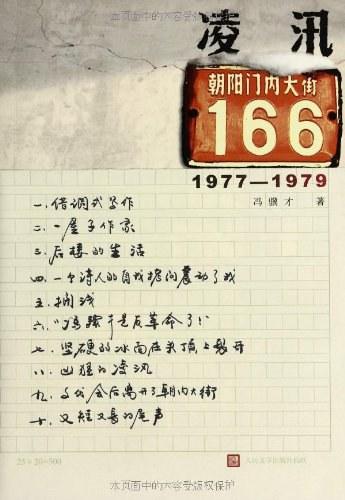 本页面中的内容受版权保护
凌汛
朝阳门内大街
166
1977—1979
冯骥才 著
一、借调式写作
二、一屋子作家
三、后楼的生活
四、一个诗人的自我拷问震动了我
五、搁浅
六、“鸡蛋于是反革命了!”
七、坚硬的冰面在头顶上裂开
八、凶猛的凌汛
九、文代会后离开了朝内大街
十、又短又长的尾声
25×20=500
人民文学出版社
本页面中的内容受版权保护